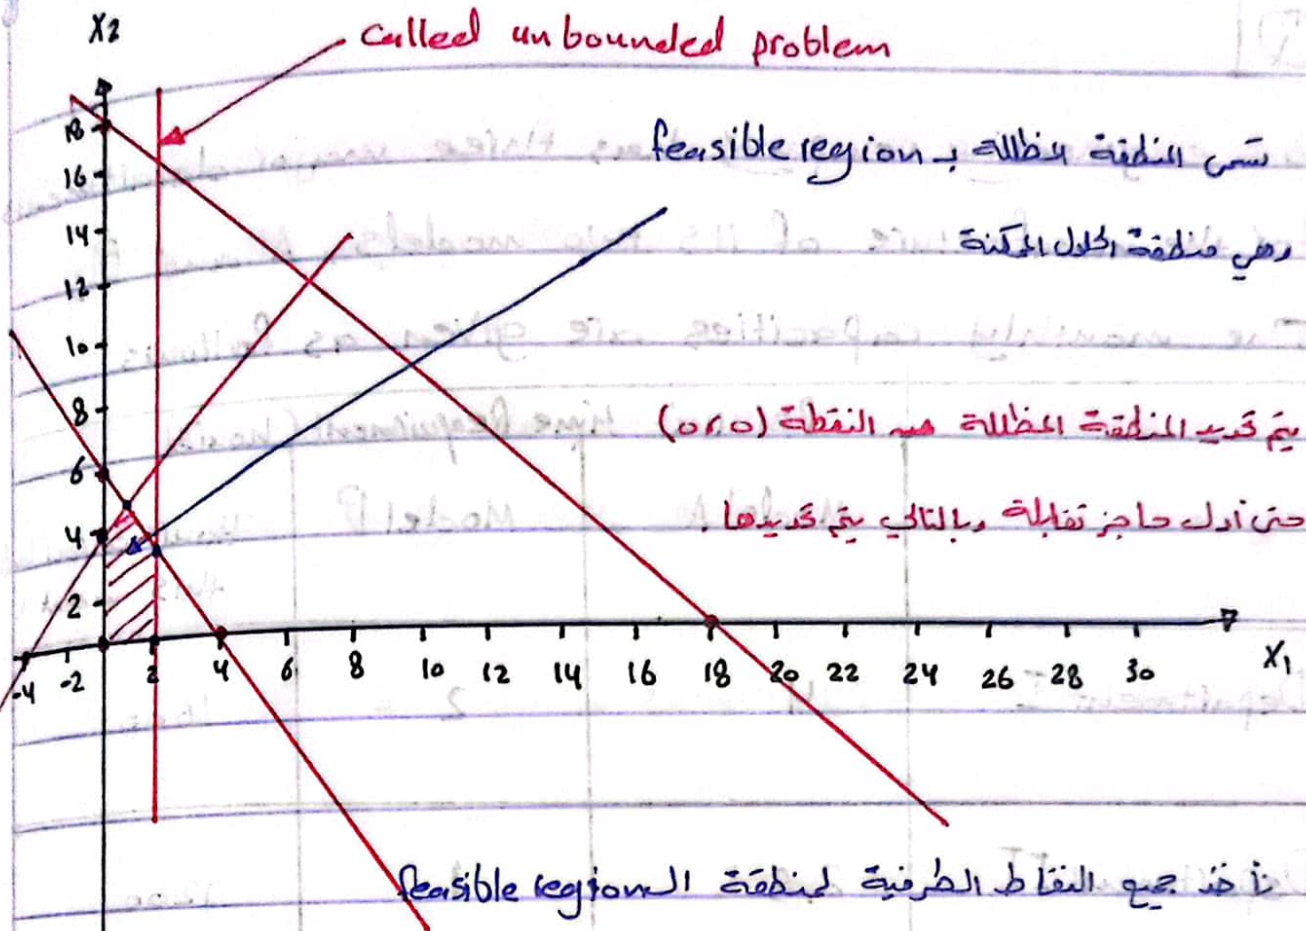 X2
called unbounded problem
تسمى المنطقة المظللة بـ feasible region
وهي منطقة الحلول الممكنة
يتم تحديد المنطقة المظللة من النقطة (0,0)
حتى أول حاجز تقابله وبالتالي يتم تحديدها.
18
16
14
12
10
8
6
4
2
-4 -2 2 4 6 8 10 12 14 16 18 20 22 24 26 28 30
X1
نأخذ جميع النقاط الطرفية لمنطقة الـ feasible region